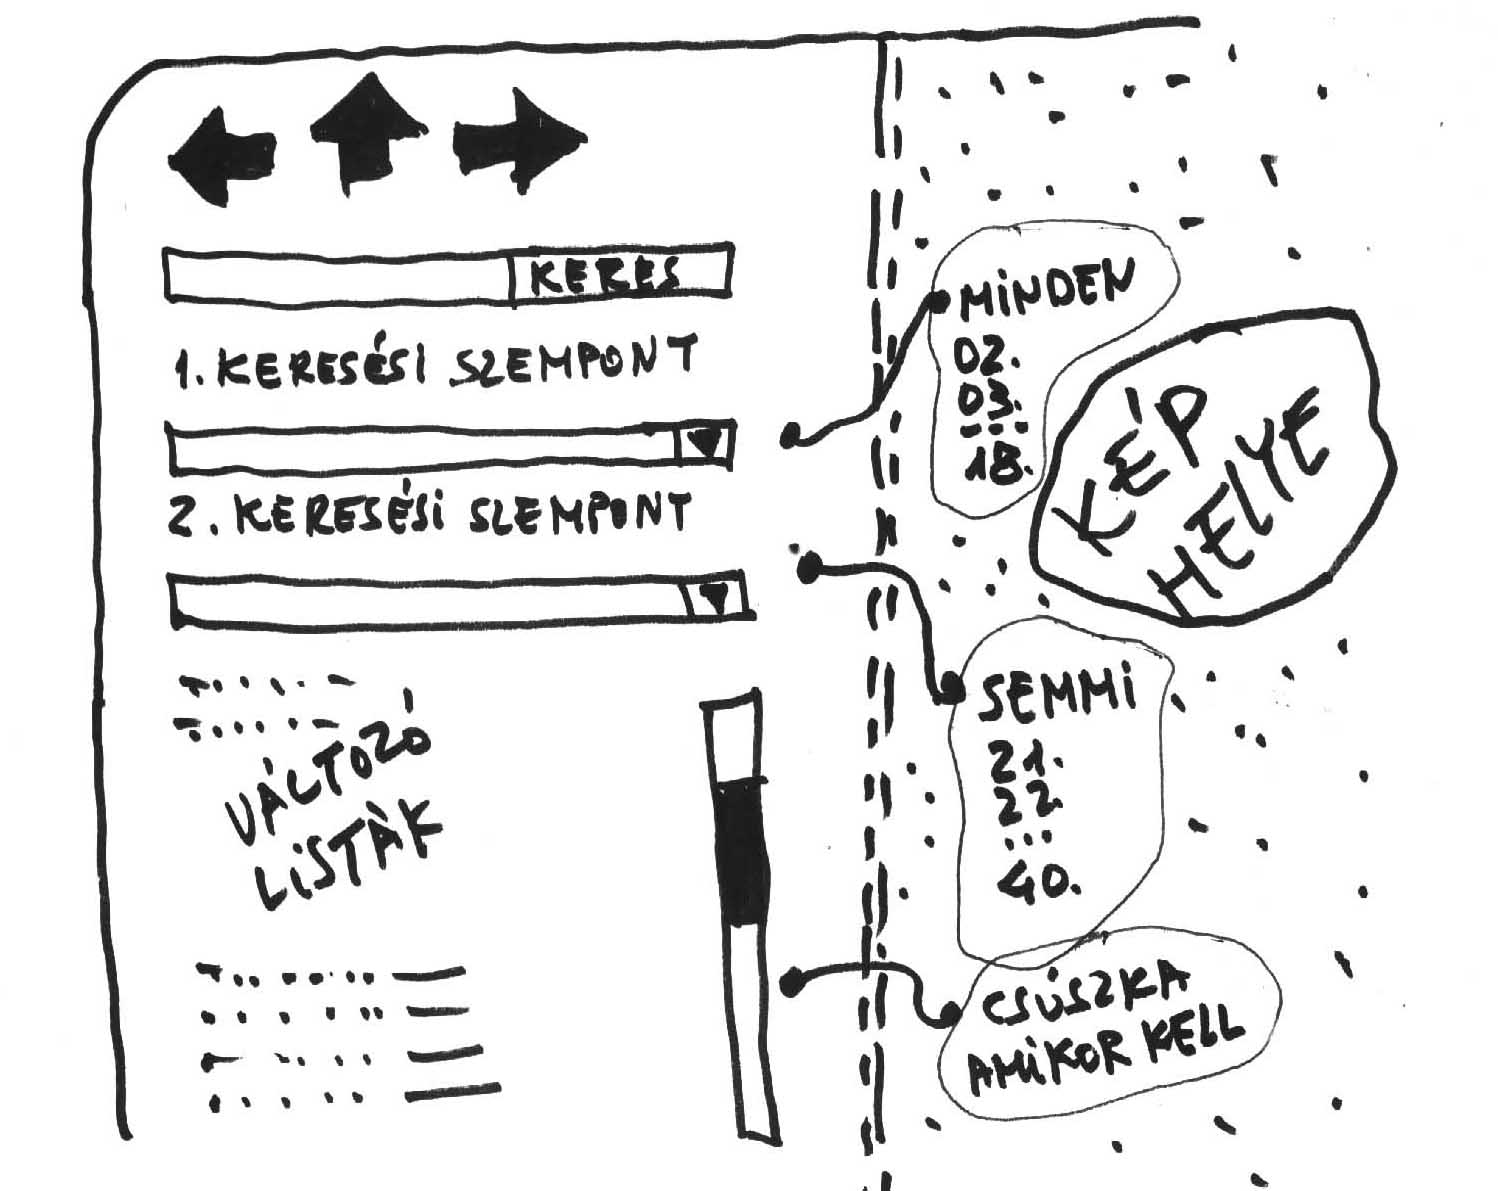 KERES
1. KERESÉSI SZEMPONT
2. KERESÉSI SZEMPONT
VÁLTOZÓ
LISTÁK
MINDEN
02.
03.
...
18.
KÉP
HELYE
SEMMI
21.
22.
...
40.
CSÚSZKA
AMIKOR KELL